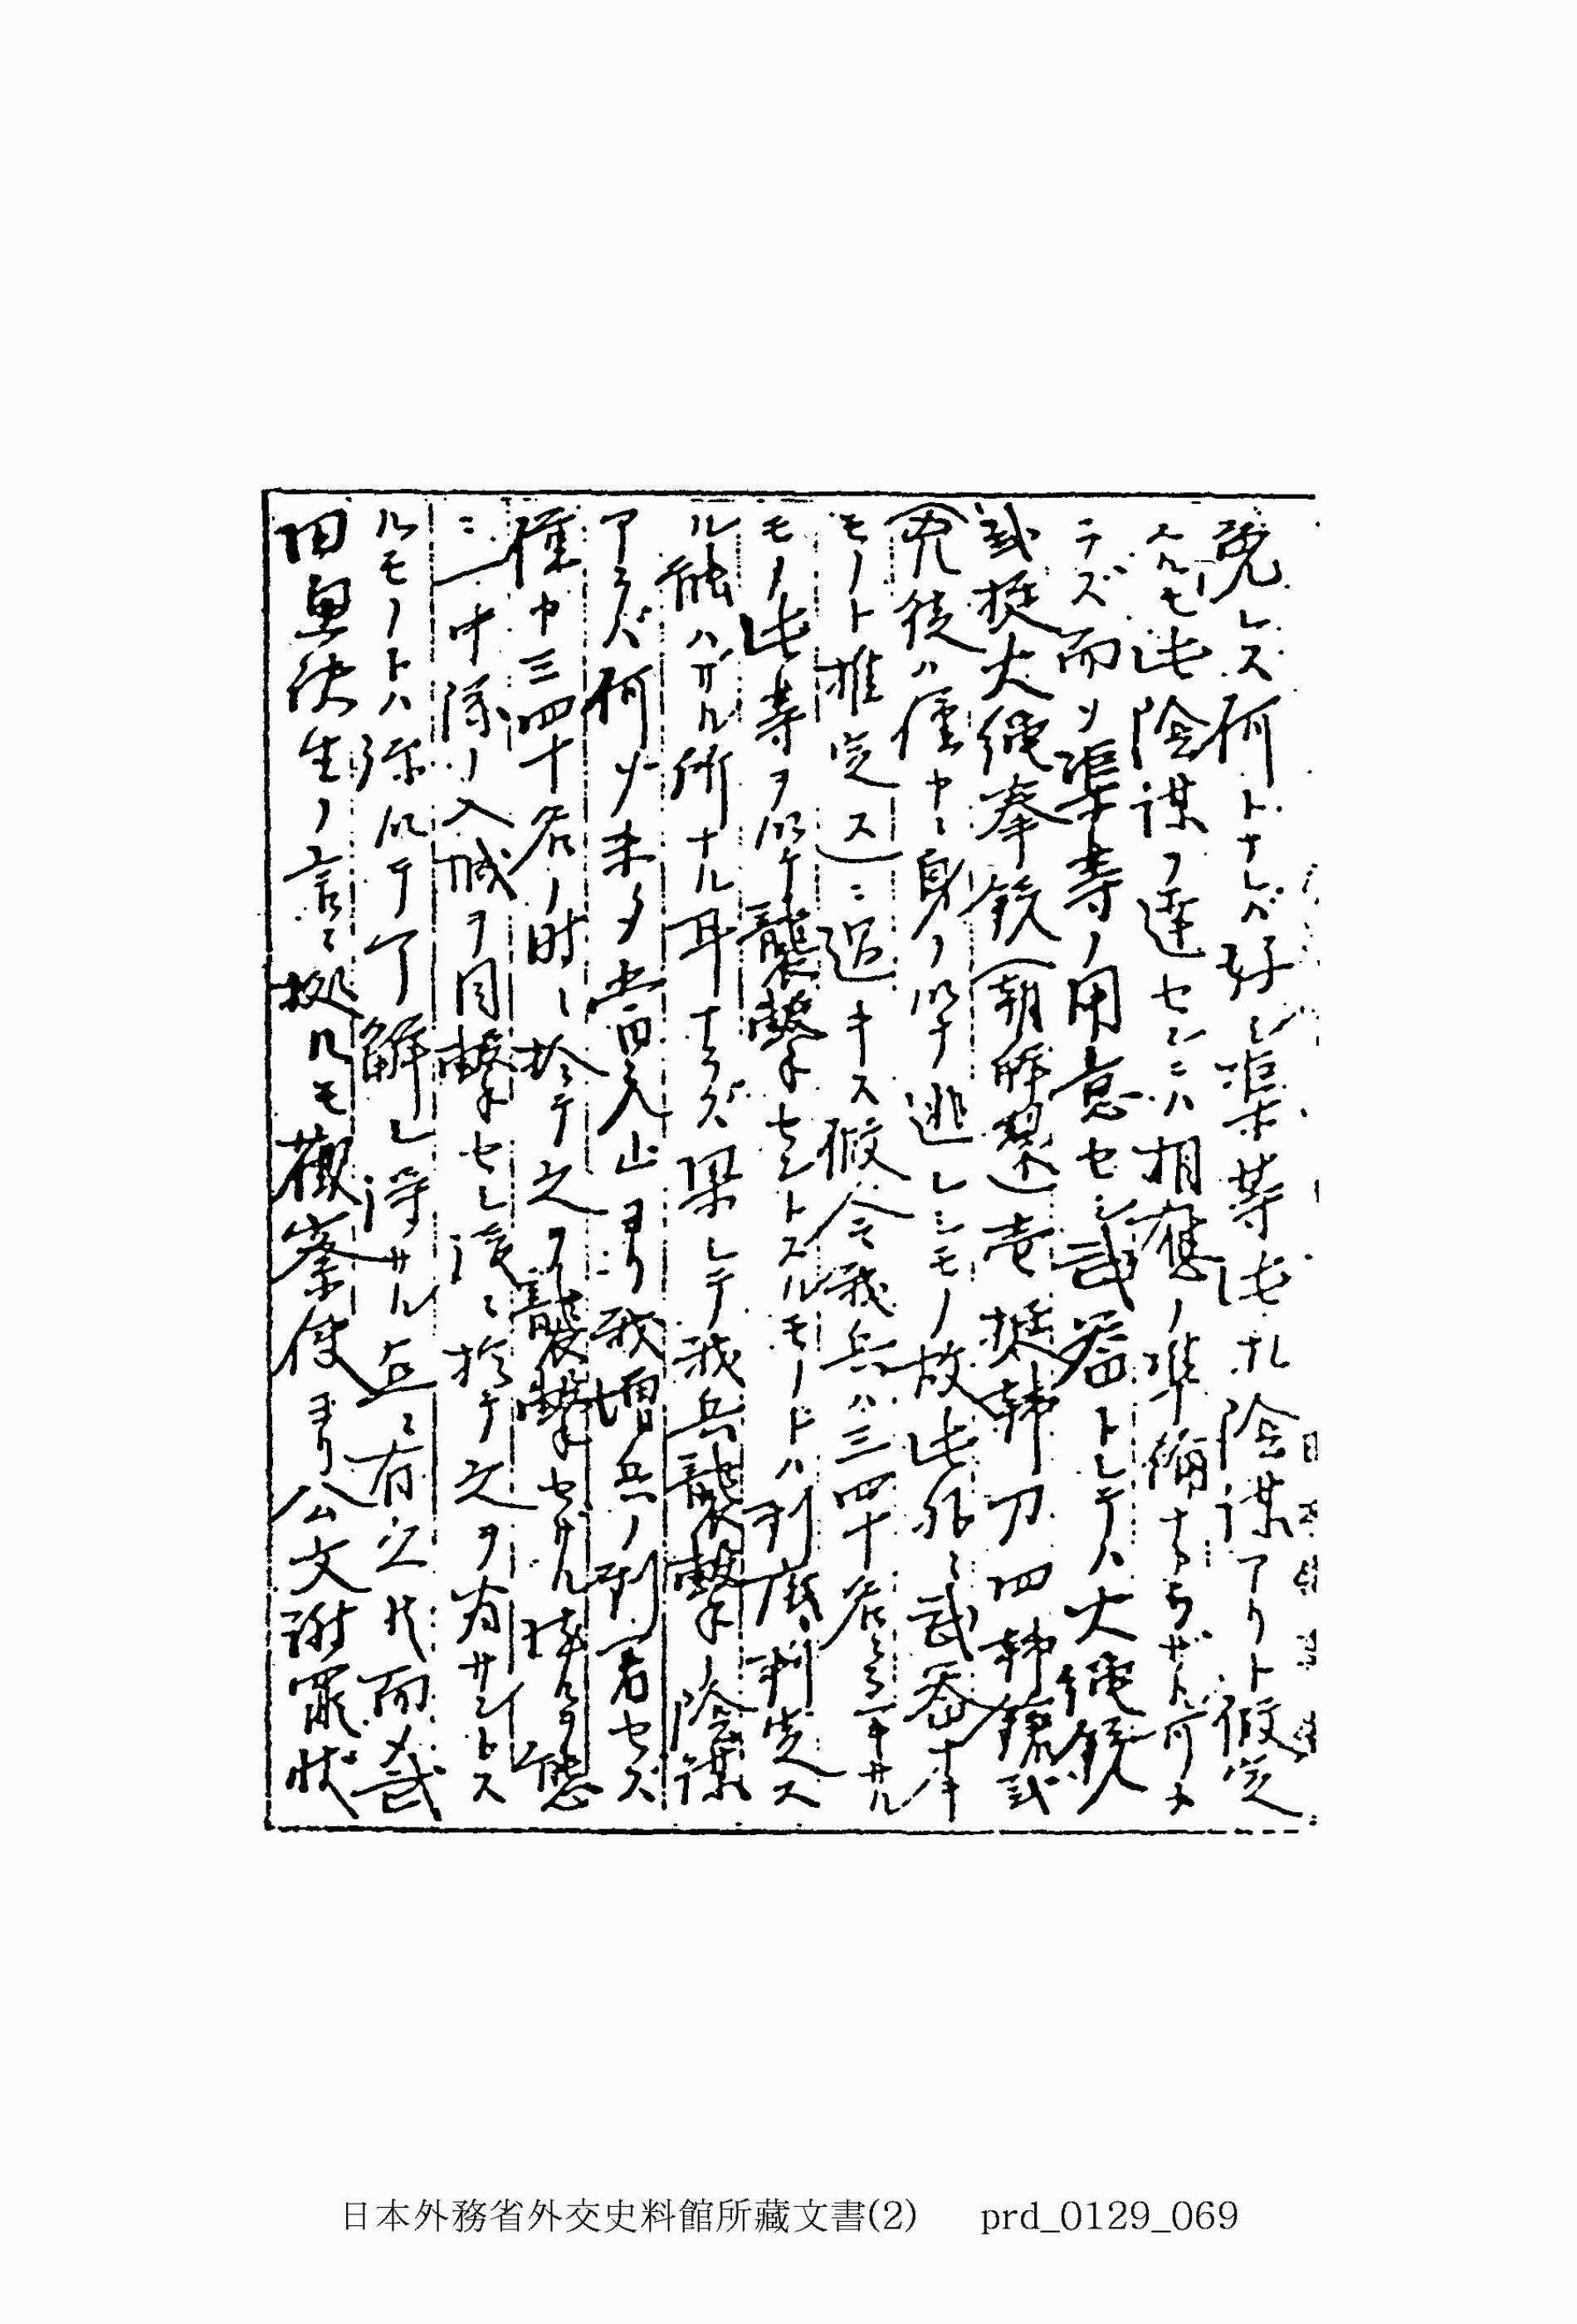 免レス何トナレバ好シ渠等此ニ陰謀アリト仮定
スルモ此陰謀ヲ達センニハ相應ノ準備ナラザル可カ
ラズ而ソ渠等ノ用意セシ武器トシテハ火縄銃
弐挺火縄拳銃(朝鮮製)壱挺韓刀四韓鎗弐
兇徒ハ僅ヤニ身ノ以テ逃レシモノ故此外ニ武器ナキ
モノト推定ス)ニ過キス假令我兵ハ三四十名ニ過キサル
モノ此等ヲ以テ襲撃セントスルモノトハ到底判定ス
ル能ハザル所ナル耳ナラズ果シテ我兵襲撃ノ陰謀
アラバ何ソ未タ當四入山ヨリ我増兵ノ到着セズ
僅ヤ三四十名ノ時ニ於テ之ヲ襲撃セザル殊更態
ニ一中隊ノ入城ヲ目撃セシ後ニ於テ之ヲ為サントス
ルモノトハ弥以テ了解シ得サル㸃ニ有之候而メ武
田奥決生ノ言ニ拠ルモ觀察使ヨリ公文謝罪状
日本外務省外交史料館所藏文書(2) prd_0129_069